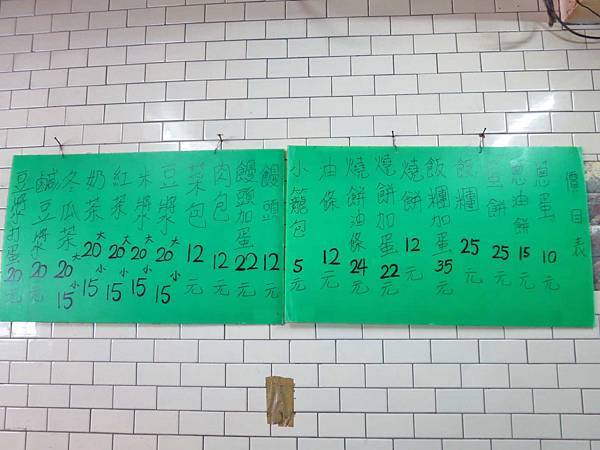 價目表
蔥蛋 10元
蔥油餅 15元
蛋餅 25元
飯糰 25元
飯糰加蛋 35元
燒餅 12元
燒餅加蛋 22元
燒餅油條 24元
油條 12元
小籠包 5元
饅頭 12元
饅頭加蛋 22元
肉包 12元
菜包 12元
豆漿 大20 小15
米漿 大20 小15
紅茶 大20 小15
奶茶 大20 小15
冬瓜茶 大20 小15
鹹豆漿 20元
豆漿打蛋 20元